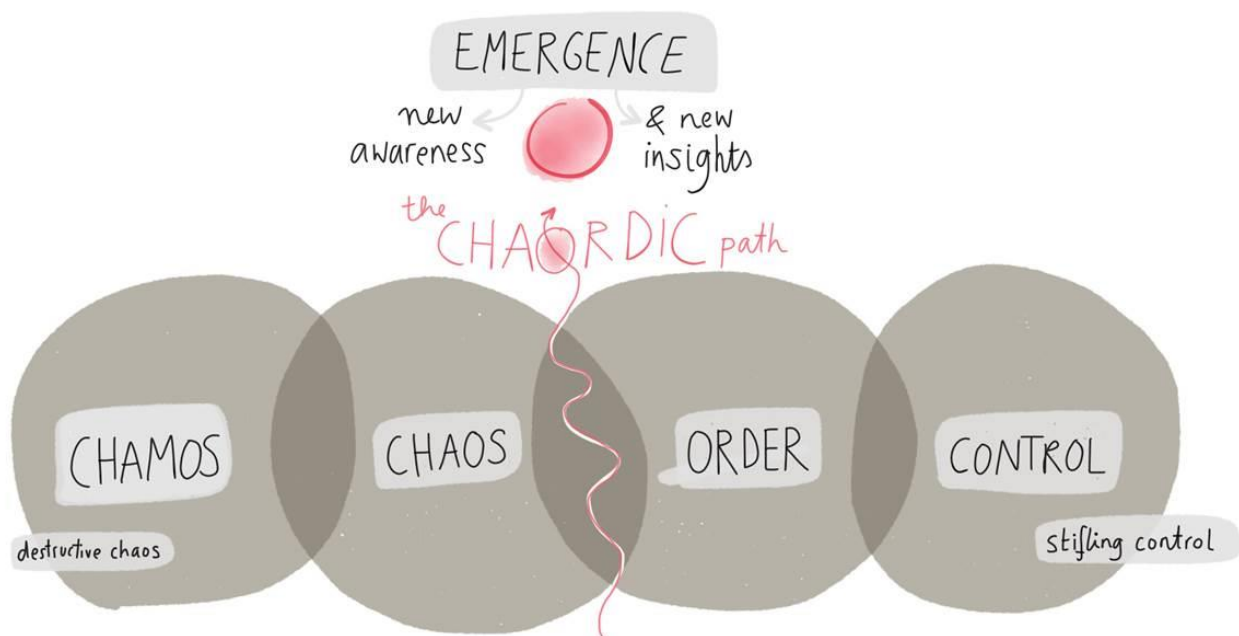 EMERGENCE
new
awareness
& new
insights
the CHAORDIC path
CHAMOS
CHAOS
ORDER
CONTROL
destructive chaos
stifling control